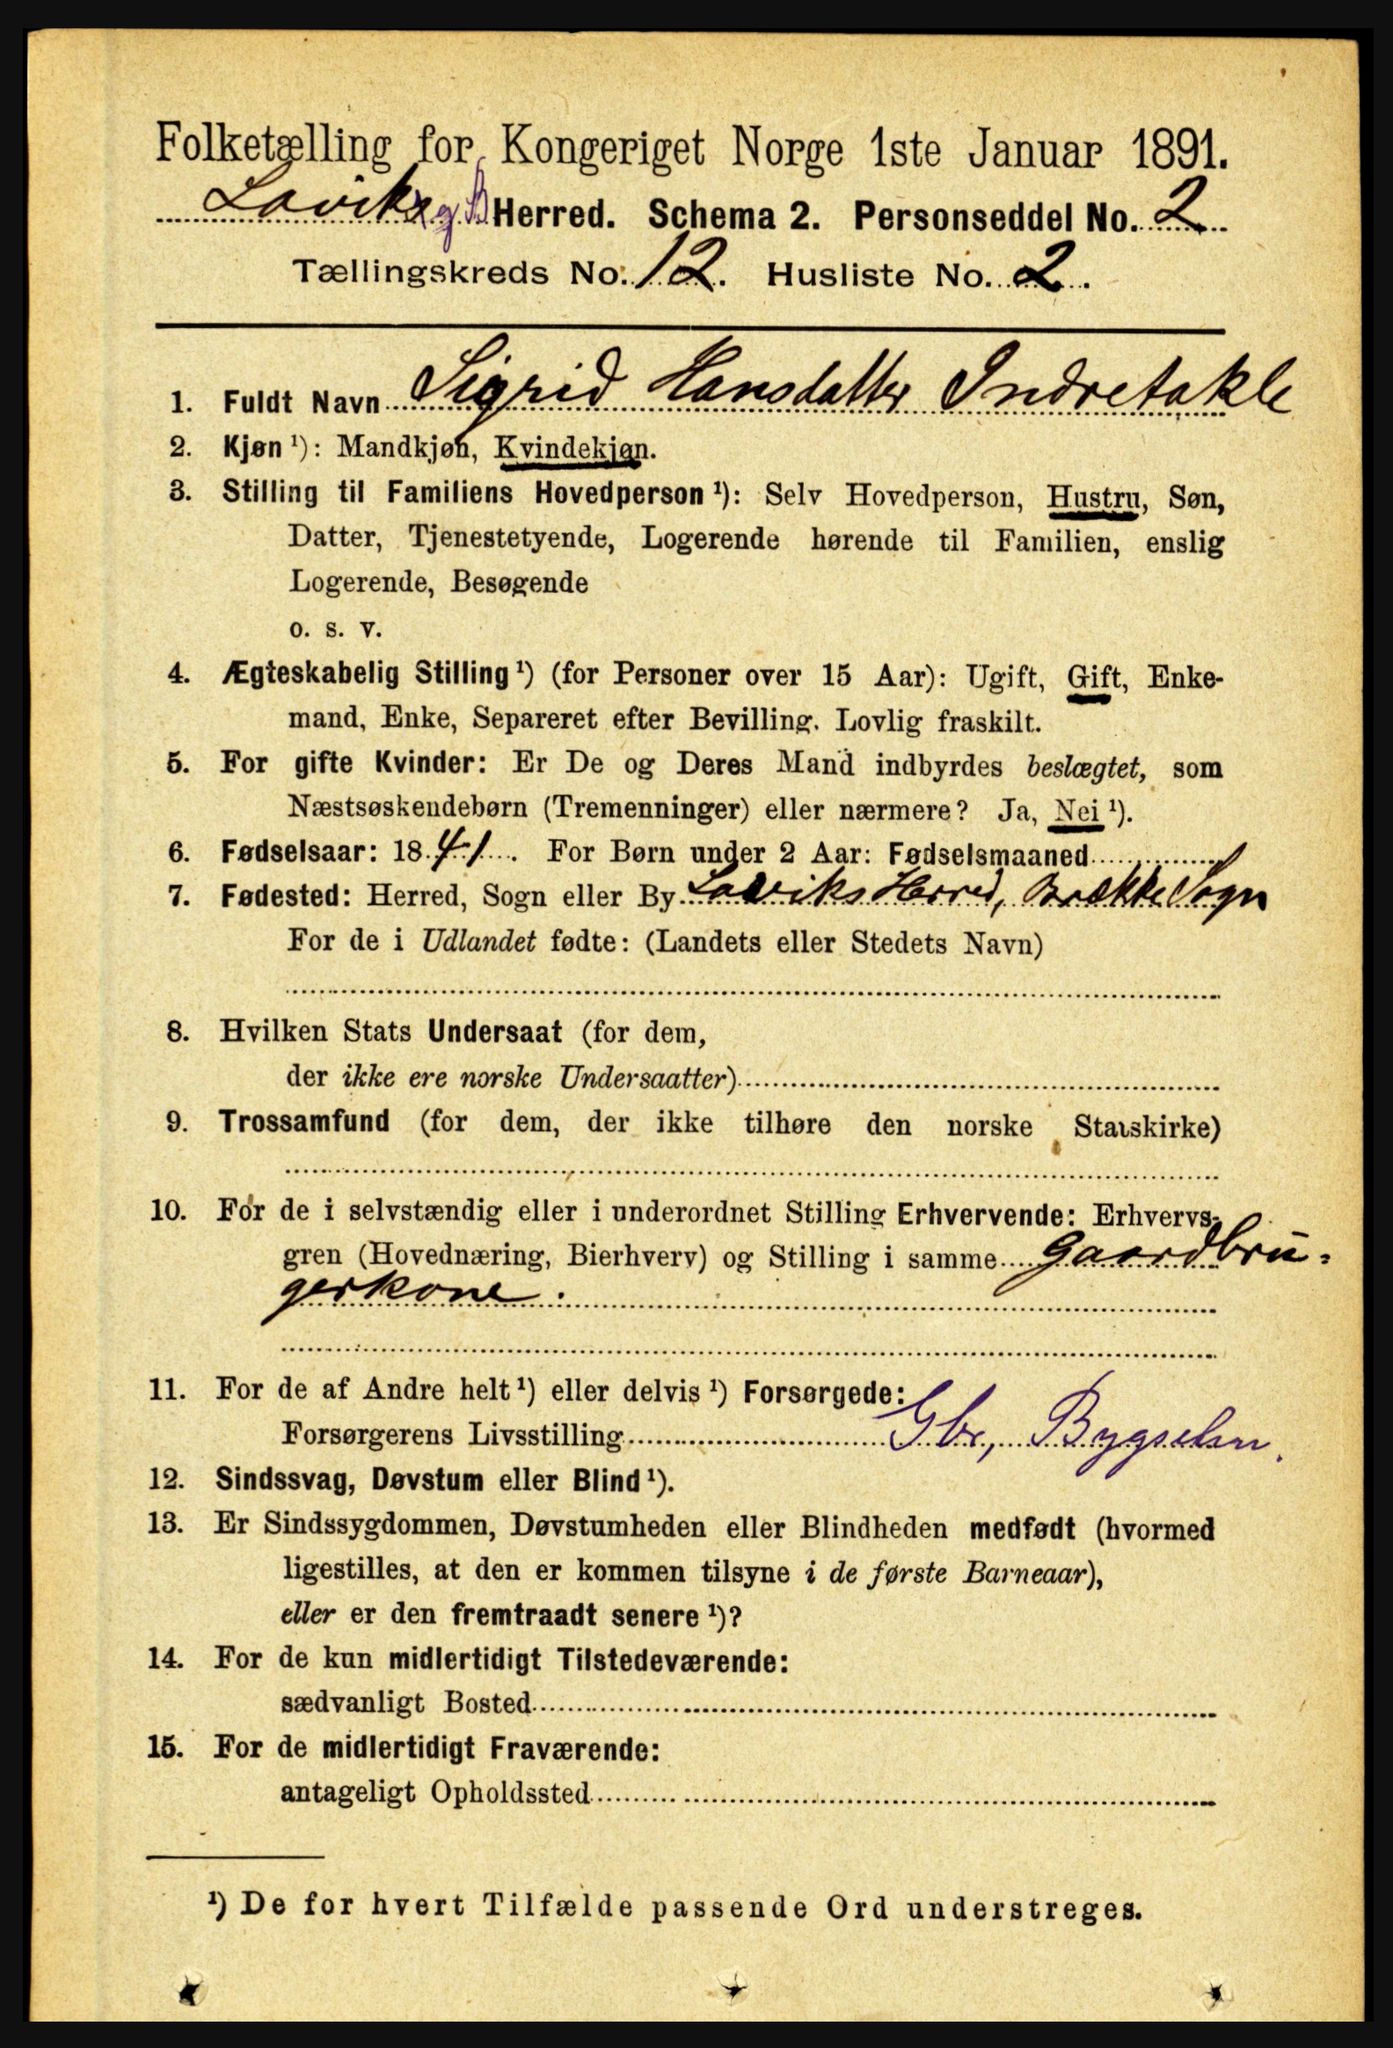 Folketælling for Kongeriget Norge 1ste Januar 1891.
Laviks og B Herred. Schema 2. Personseddel No. 2
Tællingskreds No. 12. Husliste No. 2.
1. Fuldt Navn Sigrid Hansdatter Indretakle
2. Kjøn¹): Mandkjøn, Kvindekjøn.
3. Stilling til Familiens Hovedperson¹): Selv Hovedperson, Hustru, Søn,
Datter, Tjenestetyende, Logerende hørende til Familien, enslig
Logerende, Besøgende
o. s. v.
4. Ægteskabelig Stilling¹) (for Personer over 15 Aar): Ugift, Gift, Enke-
mand, Enke, Separeret efter Bevilling. Lovlig fraskilt.
5. For gifte Kvinder: Er De og Deres Mand indbyrdes beslægtet, som
Næstsøskendebørn (Tremenninger) eller nærmere? Ja, Nei¹).
6. Fødselsaar: 1841. For Børn under 2 Aar: Fødselsmaaned
7. Fødested: Herred, Sogn eller By Laviks Herred, Brække Sogn
For de i Udlandet fødte: (Landets eller Stedets Navn)
8. Hvilken Stats Undersaat (for dem,
der ikke ere norske Undersaatter)
9. Trossamfund (for dem, der ikke tilhøre den norske Statskirke)
10. For de i selvstændig eller i underordnet Stilling Erhvervende: Erhvervs-
gren (Hovednæring, Bierhverv) og Stilling i samme Gaardbru-
gerkone.
11. For de af Andre helt¹) eller delvis¹) Forsørgede:
Forsørgerens Livsstilling Gbr, Bygselm.
12. Sindssvag, Døvstum eller Blind¹).
13. Er Sindssygdommen, Døvstumheden eller Blindheden medfødt (hvormed
ligestilles, at den er kommen tilsyne i de første Barneaar),
eller er den fremtraadt senere¹)?
14. For de kun midlertidigt Tilstedeværende:
sædvanligt Bosted
15. For de midlertidigt Fraværende:
antageligt Opholdssted
¹) De for hvert Tilfælde passende Ord understreges.